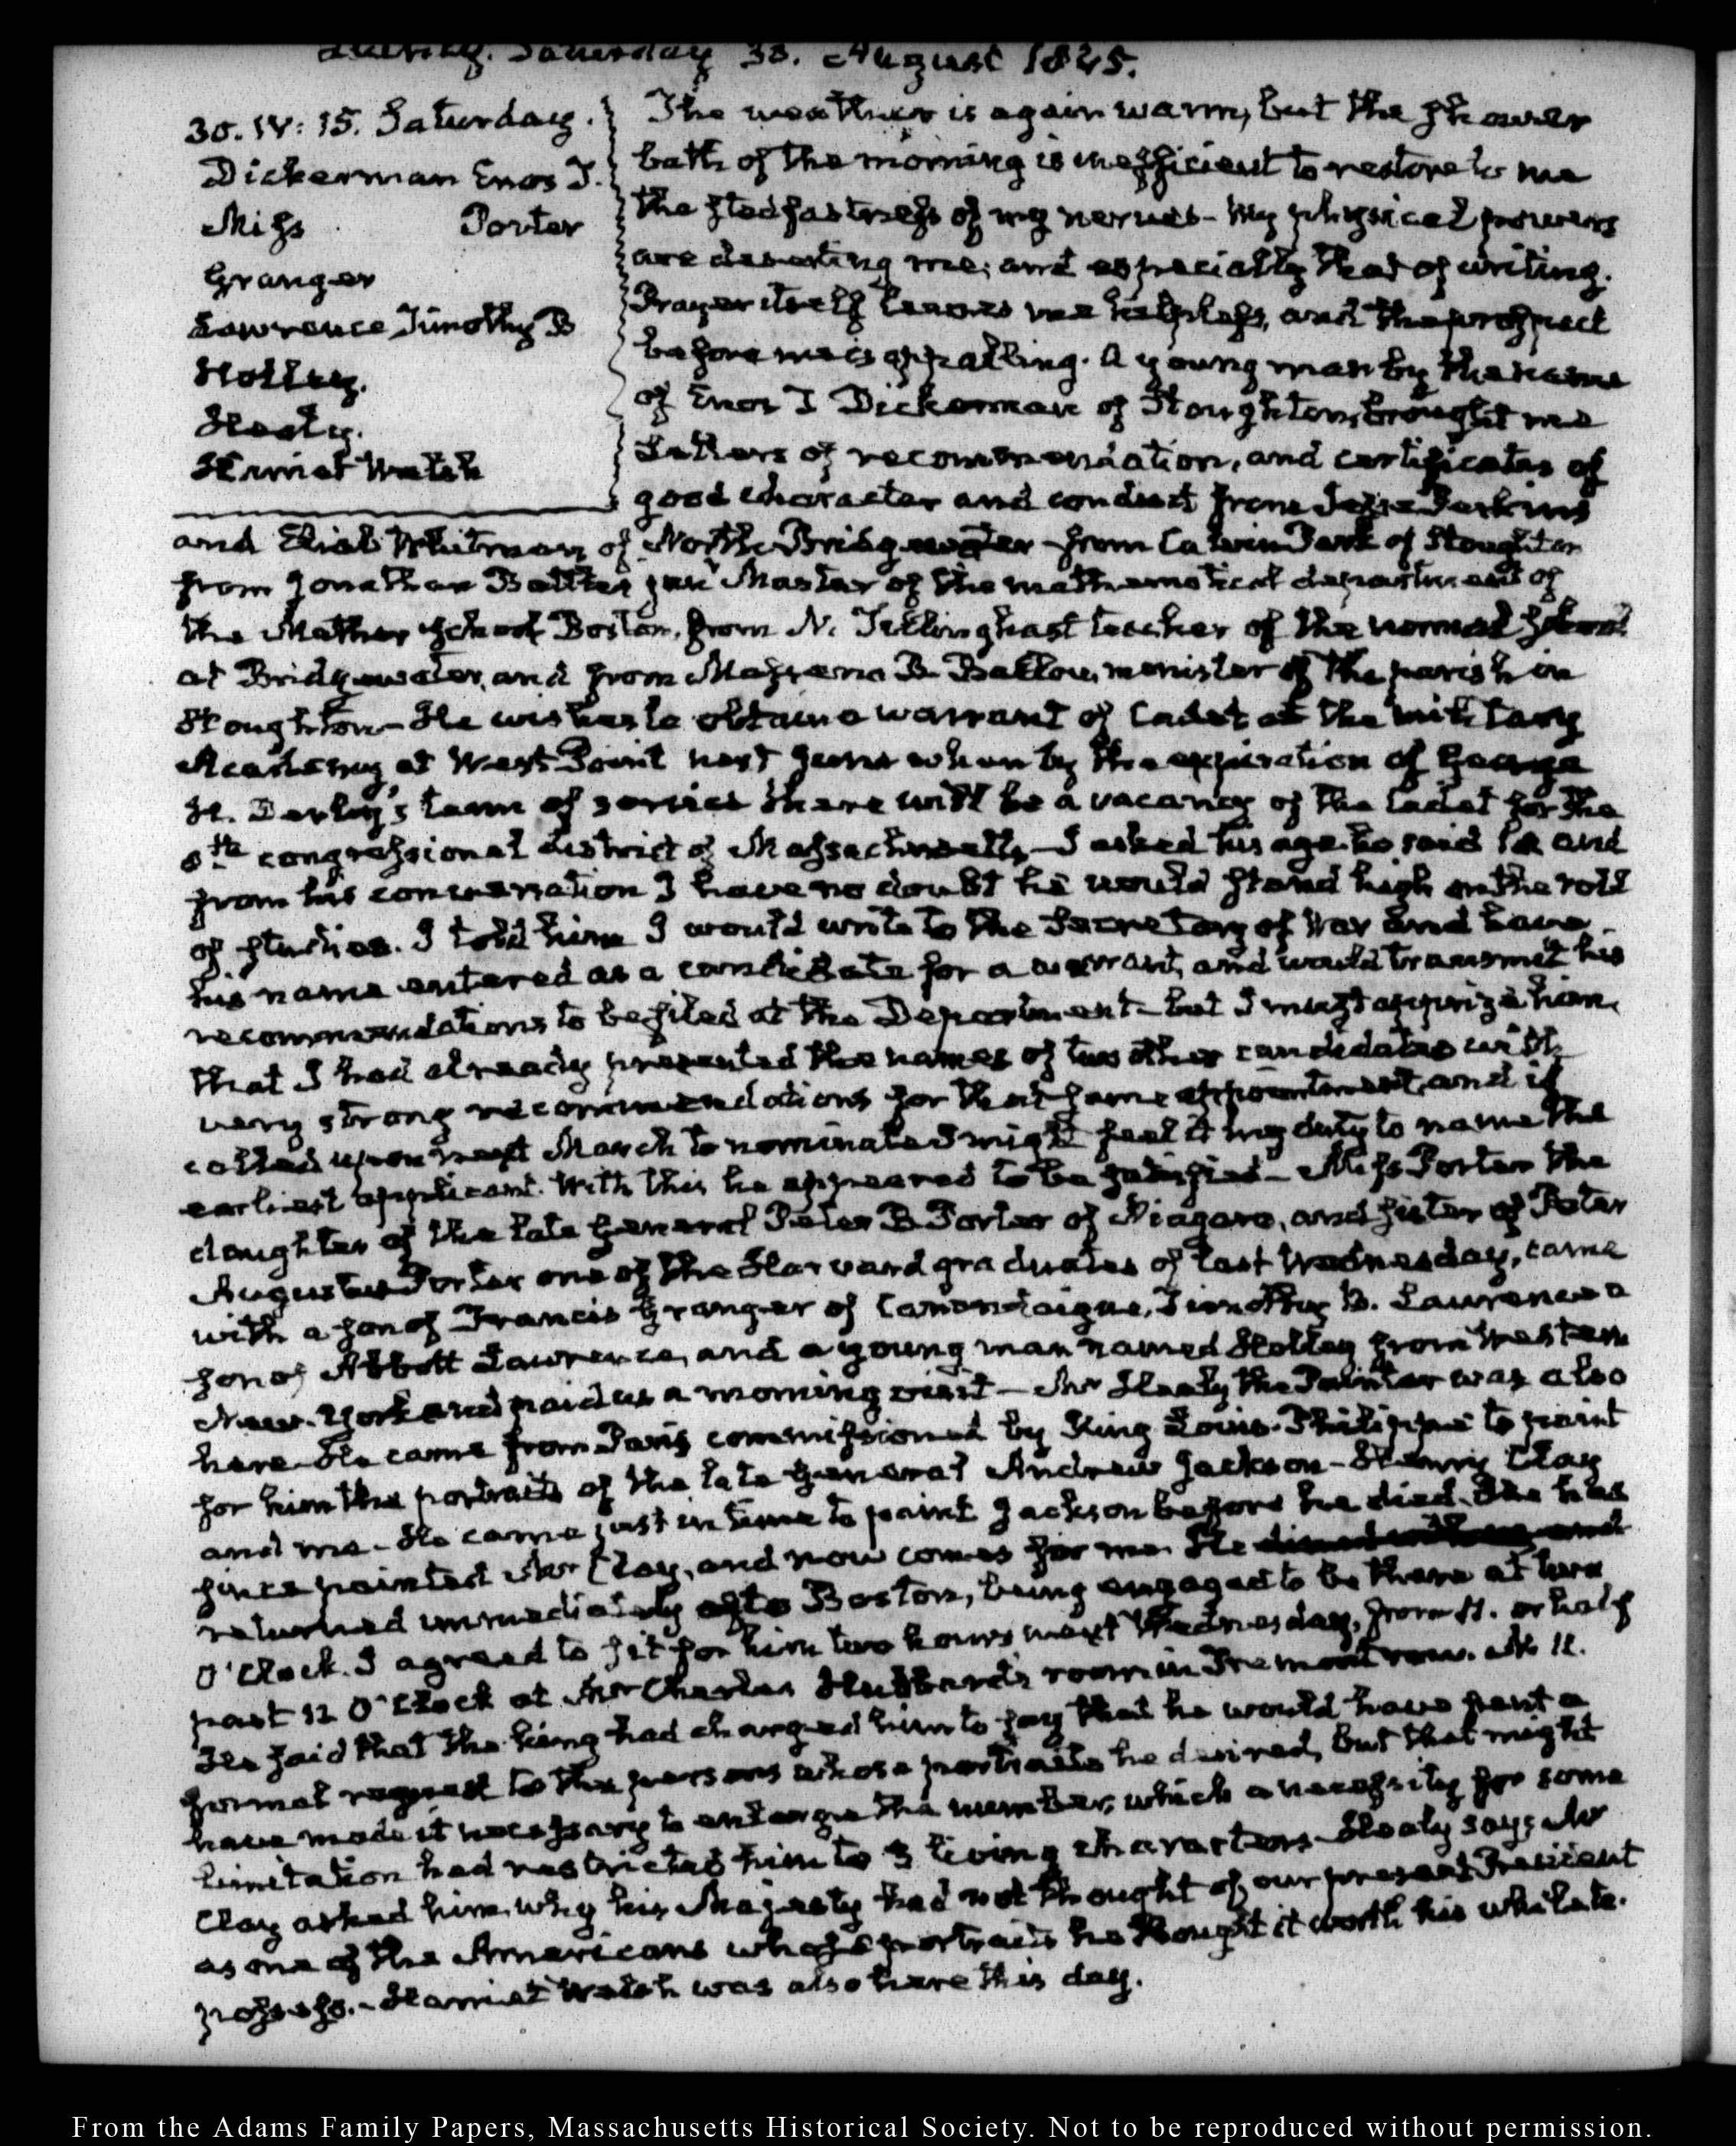 Quincy. Saturday 30. August 1845.
30. IV: 15. Saturday.
Dickerman Enos T.
Miss Porter
Granger
Lawrence Timothy B
Holley.
Healy.
Harriet Welsh
The weather is again warm, but the shower
bath of the morning is inefficient to restore to me
the stedfastness of my nerves - My physical powers
are deserting me; and especially that of writing.
Prayer itself leaves me helpless, and the prospect
before me is appalling. A young man by the name
of Enos T Dickerman of Stoughton, brought me
Letters of recommendation, and certificates of
good character and conduct from Jesse Perkins
and Eliab Whitman of North Bridgewater - from Calvin Park of Stoughton
from Jonathan Battles junr Master of the mathematical department of
the Mather school Boston, from N. Tillinghast teacher of the normal school
at Bridgewater, and from Massena B. Ballou, minister of the parish in
Stoughton - He wishes to obtain a warrant of Cadet at the military
Academy at West-Point next year when by the expiration of George
H. Derby's term of service there will be a vacancy of the Cadet for the
8th. congressional district of Massachusetts - I asked his age. he said 18 and
from his conversation I have no doubt he would stand high on the roll
of studies. I told him I would write to the Secretary of War and have
his name entered as a candidate for a warrant, and would transmit his
recommendations to be filed at the Department - but I must apprize him,
that I had already presented the names of two other candidates with
very strong recommendations for that same appointment, and if
called upon next March to nominate I might feel it my duty to name the
earliest applicant. With this he appeared to be satisfied - Miss Porter the
daughter of the late General Peter B. Porter of Niagara, and sister of Peter
Augustus Porter one of the Harvard graduates of last Wednesday, came
with a son of Francis Granger of Canandaigua, Timothy B. Lawrence a
son of Abbott Lawrence, and a young man named Holley from Western
New-York and paid us a morning visit - Mr Healy the Painter was also
here. He came from Paris commissioned by King Louis-Philippe to paint
for him the portraits of the late General Andrew Jackson - Henry Clay
and me - He came just in time to paint Jackson before he died. He has
since painted Mr Clay, and now comes for me. He dined with us and
returned immediately to Boston, being engaged to be there at two
O'Clock. I agreed to sit for him two hours next Wednesday, from 11. or half
past 12 O'Clock at Mr Charles Hubbard's room in Tremont row. No 11.
He said that the king had charged him to say that he would have sent a
formal request to the persons whose portraits he desired, but that might
have made it necessary to enlarge the number, which a necessity for some
limitation had restricted him to 3 living characters - Healy says Mr
Clay asked him, why his Majesty had not thought of our present President
as one of the Americans whose portraits he thought it worth his while to
possess. - Harriet Welsh was also here this day.
From the Adams Family Papers, Massachusetts Historical Society. Not to be reproduced without permission.